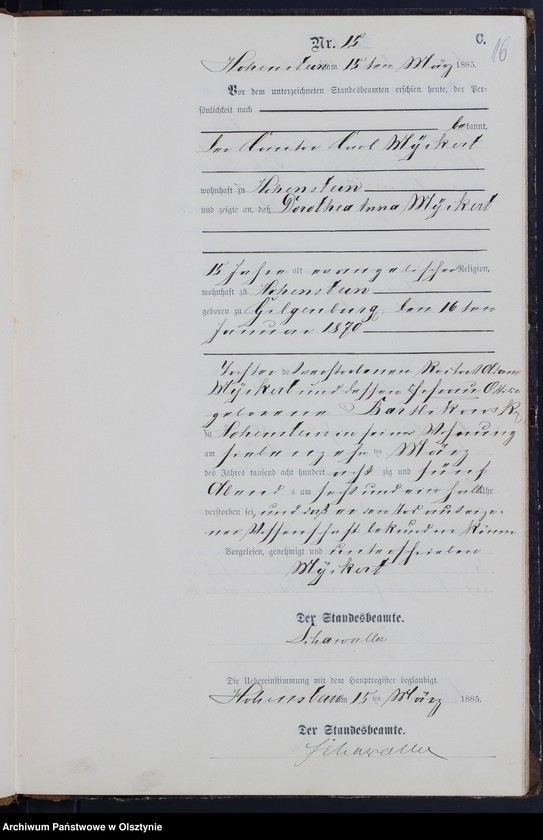 C.
16
Nr. 15
Hohenstein am 15ten März 1885.
Vor dem unterzeichneten Standesbeamten erschien heute, der Per-
sönlichkeit nach
bekannt,
der Cantor Carl Myckert
wohnhaft zu Hohenstein
und zeigte an, daß Dorothea Anna Myckert
15 Jahre alt evangelischer Religion,
wohnhaft zu Hohenstein
geboren zu Gilgenburg, den 16ten
Januar 1870
Tochter des verstorbenen Rector
Myckert und dessen Ehefrau
geborene
zu Hohenstein in seiner Wohnung
am März
des Jahres tausend acht hundert acht zig und fünf
Abends um sechs und ein halb Uhr
verstorben sei, und daß er von Tod aus eige-
ner Wissenschaft bekunden könne
Vorgelesen, genehmigt und unterschrieben
Myckert
Der Standesbeamte.
Schawaller
Die Uebereinstimmung mit dem Hauptregister beglaubigt.
Hohenstein am 15ten März 1885.
Der Standesbeamte.
Schawaller
Archiwum Państwowe w Olsztynie